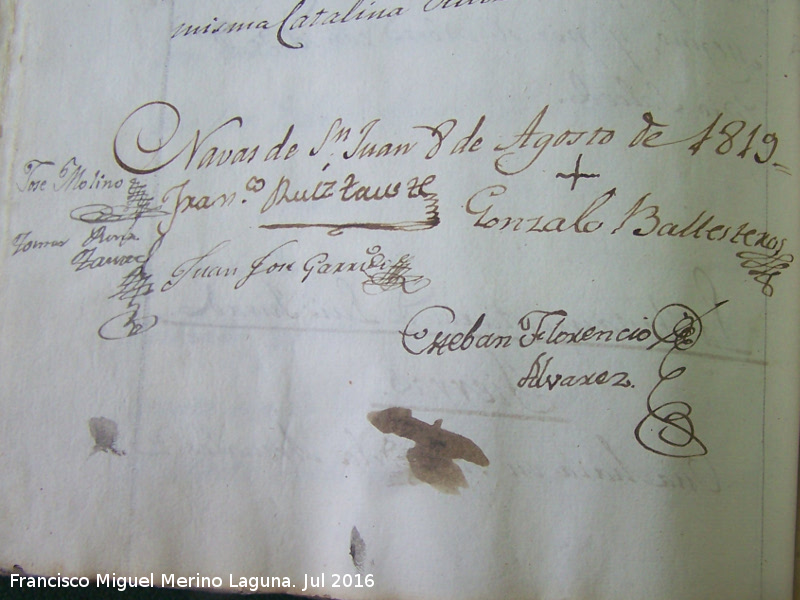 misma Catalina
Navas de Sn Juan 8 de Agosto de 1819
Jose Molino
Fran.co Ruiz Tauste
Gonzalo Ballesteros
Tomas Ruiz
Tauste
Juan Jose Garrido
Esteban Florencio
Alvarez.
Francisco Miguel Merino Laguna. Jul 2016